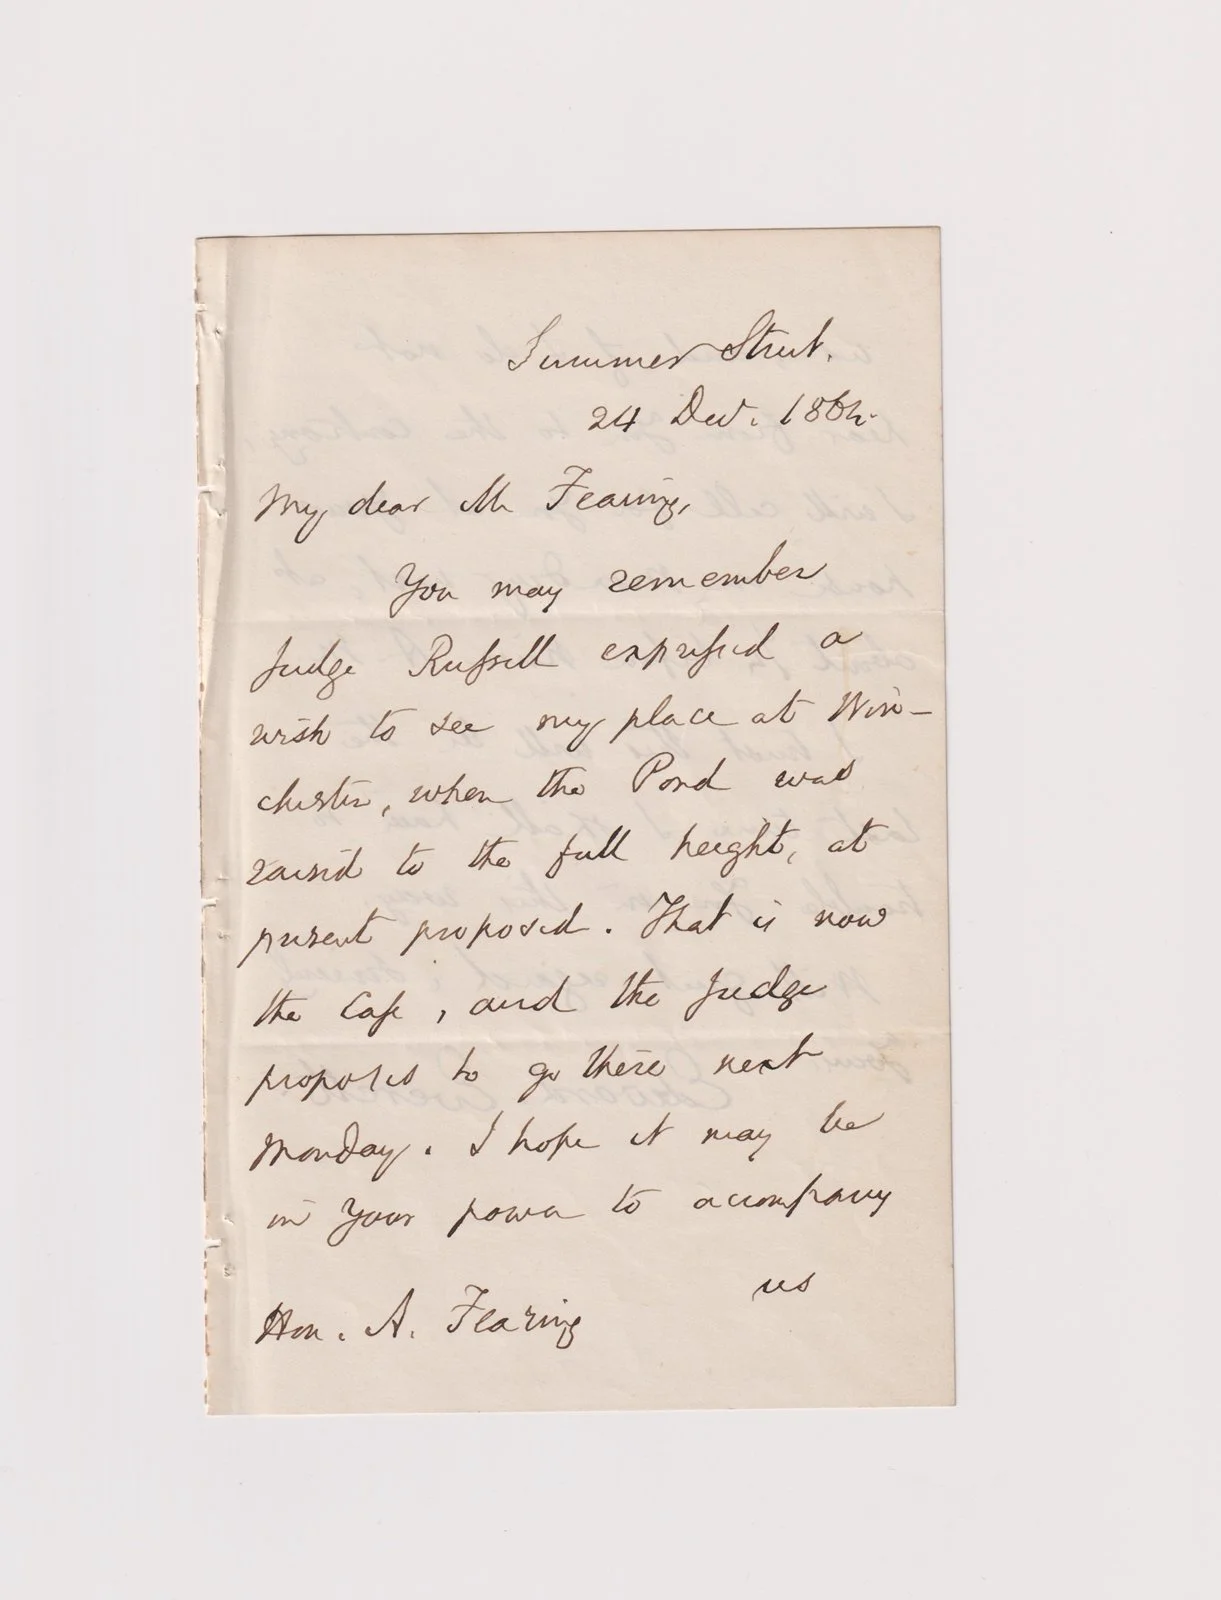 Summer Street.
24 Dec. 1864.
My dear Mr Fearing,
You may remember
Judge Russell expressed a
wish to see my place at Win-
chester, when the Pond was
raised to the full height, at
present proposed. That is now
the case, and the Judge
proposes to go there next
Monday. I hope it may be
in your power to accompany
us
Hon. A. Fearing